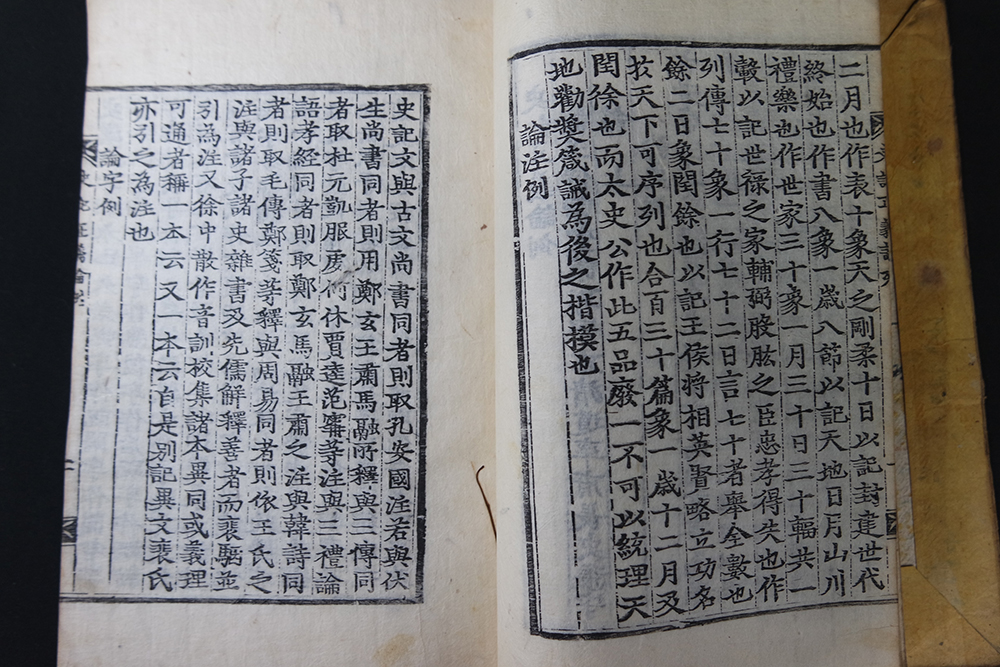 二月也作表十象天之剛柔十日以記封建世代
終始也作書八象一歲八節以記天地日月山川
禮樂也作世家三十象一月三十日三十輻共一
轂以記世祿之家輔弼股肱之臣忠孝得失也作
列傳七十象一行七十二日言七十者舉全數也
餘二日象閏餘也以記王侯將相英賢略立功名
於天下可序列也合百三十篇象一歲十二月及
閏餘也而太史公作此五品廢一不可以統理天
地勸奬箴誡為後之揩模也
論注例
史記文與古文尚書同者則取孔安國注若與伏
生尚書同者則用鄭玄王肅馬融所釋與三傳同
者取杜元凱服虔何休賈逵范甯等注與三禮論
語孝經同者則取鄭玄馬融王肅之注與韓詩同
者則取毛傳鄭箋等釋與周易同者則依王氏之
注與諸子諸史雜書及先儒解釋善者而裴駰並
引為注又徐中散作音訓校集諸本異同或義理
可通者稱一本云又一本云自是別記異文裴氏
亦引之為注也
論字例